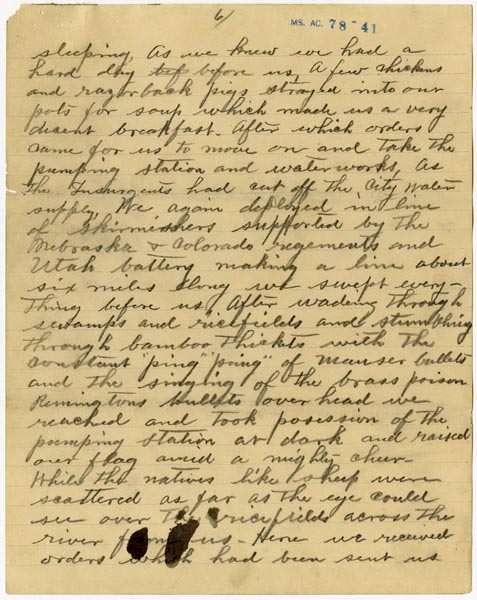 6/
MS. AC. 78-41
sleeping, As we knew we had a
hard day before us, A few chickens
and razorback pigs strayed into our
pots for soup which made us a very
desent breakfast. After which orders
came for us to move on and take the
pumping station and waterworks, as
the Insurgents had cut off the City water
supply, We again deployed in line
of Skirmishers supported by the
Nebraska & Colorado regements and
Utah battery making a line about
six miles long we swept every-
thing before us, After wadeing through
swamps and ricefields and stumbling
through bamboo thickets with the
constant "ping" "ping" of Mauser bullets
and the singing of the brass poison
Remingtons bullets over head we
reached and took posession of the
pumping station at dark and raised
our flag amid a mighty cheer-
While the natives like sheep were
scattered as far as the eye could
see over the ricefields across the
river from us - Here we received
orders which had been sent us